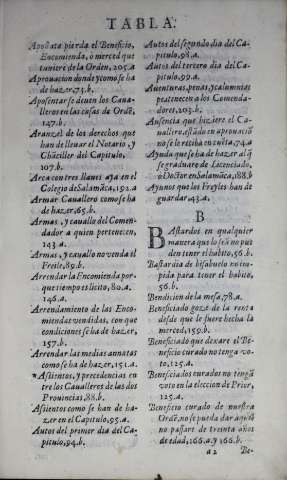 TABLA.
Apostata pierda el Beneficio,
Encomienda, o merced que
tuuiere de la Orden, 205.a
Aprouacion donde y como se ha
de hazer, 73.b.
Aposentar se deuen los Caua-
lleros en las casas de Ordẽ,
147.b.
Aranzel de los derechos que
han de lleuar el Notario, y
Chãciller del Capitulo,
107.b.
Arca con tres llaues aya en el
Colegio de Salamãca, 192.a
Armar Cauallero como se ha
de hazer, 65.b.
Armas, y cauallo del Comen-
dador a quien pertenecen,
143.a.
Armas, y cauallo no venda el
Freile, 89.b.
Arrendar la Encomienda por
que tiempo es licito, 80.a.
146.a.
Arrendamiento de las Enco-
miendas vendidas, con que
condiciones se ha de hazer,
157.b.
Arrendar las medias annatas
como se ha de hazer, 151.a.
Assientos, y precedencias en
tre los Caualleros de las dos
Prouincias, 88.b.
Assientos como se han de ha-
zer en el Capitulo, 95.a.
Autos del primer dia del Ca-
pitulo, 94.b.
Autos del segundo dia del Ca-
pitulo, 98.a.
Autos del tercero dia del Ca-
pitulo, 99.a.
Auenturas, penas, y calumnias
pertenecen a los Comenda-
dores, 203.b.
Ausencia que hiziere el Ca-
uallero, estãdo en aprouaciõ
no se le reciba en cuẽta, 74.a
Ayuda que se ha de hazer al q̃
se graduare de Licenciado,
o Doctor en Salamãca, 188.b
Ayunos que los Freyles han de
guardar, 43.a.
B
Bastardos en qualquier
manera que lo seã no pue
den tener el habito, 56.b.
Bastardia de bisabuelo no im-
pida para tener el habito,
56.b.
Bendicion de la mesa, 78.a.
Beneficiado goze de la renta
desde que le fuere hecha la
merced, 159.b.
Beneficiado que dexare el Be-
neficio curado no tenga vo-
to, 125.a.
Beneficiados curados no tengã
voto en la eleccion de Prior,
125.a.
Beneficio curado de nuestra
Ordẽ, no se pueda dar a quiẽ
no passare de treinta años
de edad, 166.a. y 166.b.
a 2 Be-